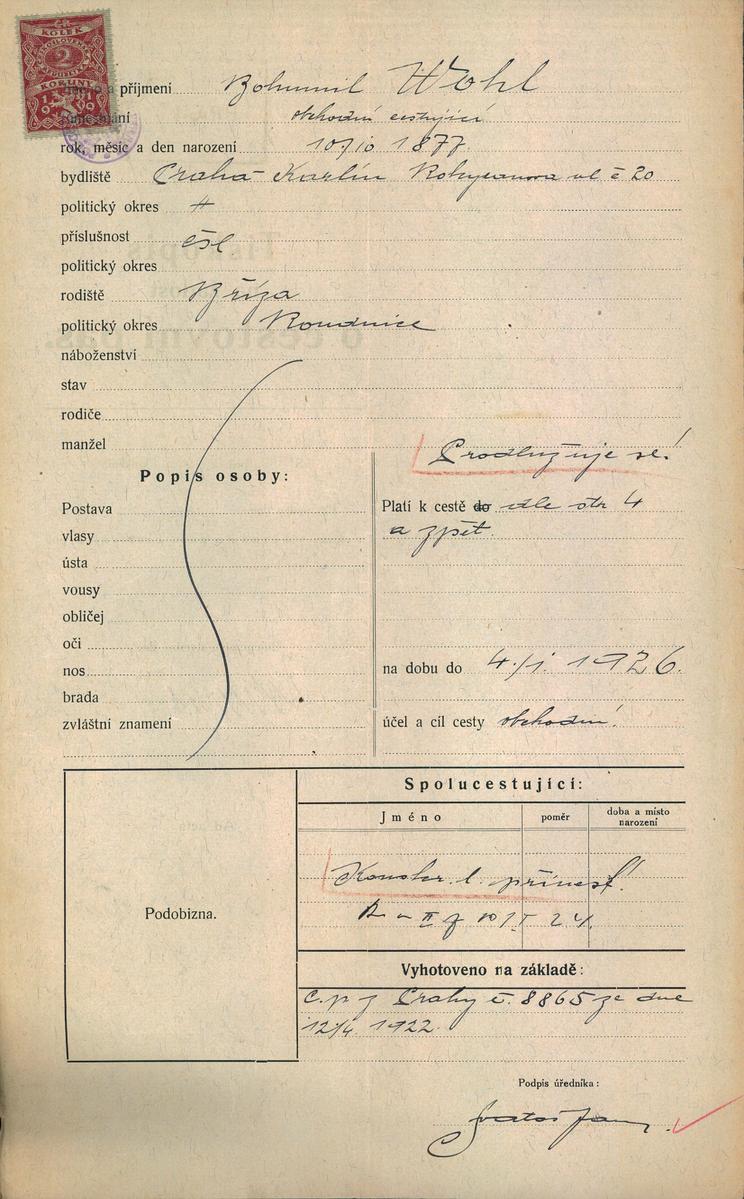 KOLEK
2
KORUNY
a příjmení Bohumil Wohl
obchodní cestující
rok, měsíc a den narození 10/10 1877.
bydliště Praha-Karlín Rokycanova ul č 20
politický okres
příslušnost čsl
politický okres
rodiště Bříza
politický okres Roudnice
náboženství
stav
rodiče
manžel
Prodlužuje se!
Popis osoby:
Postava
vlasy
ústa
vousy
obličej
oči
nos
brada
zvláštní znamení
Platí k cestě do dle str 4
a zpět.
na dobu do 4./1. 1926.
účel a cíl cesty obchodní.
Podobizna.
Spolucestující:
Jméno poměr doba a místo narození
Konskr. l. přinesl!
24.
Vyhotoveno na základě:
c. p z Prahy č. 8865 ze dne
12/4. 1922.
Podpis úředníka: